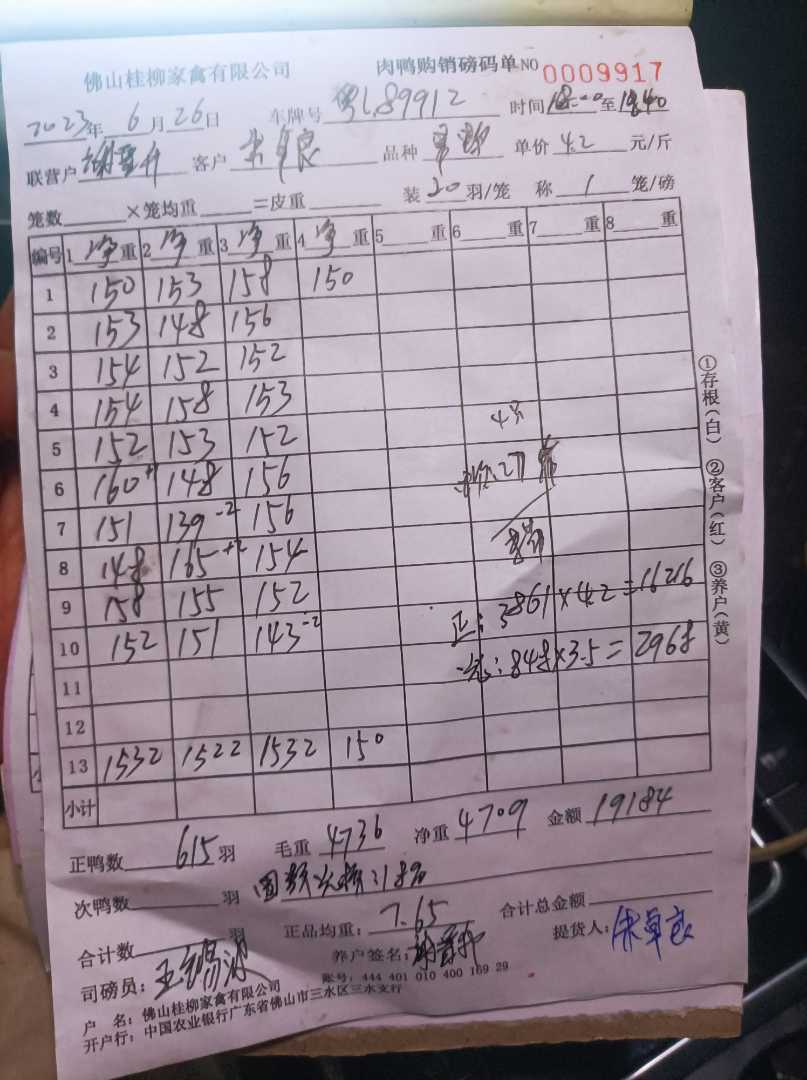 佛山桂柳家禽有限公司 肉鸭购销磅码单 NO 0009917
2023年 6月26日 车牌号 粤L89912 时间 18:00至19:40
联营户 客户 朱卓良 品种 单价 4.2 元/斤
笼数 ×笼均重 =皮重 装 20 羽/笼 称 1 笼/磅
编号 1 净 重 2 净 重 3 净 重 4 净 重 5 重 6 重 7 重 8 重
1 150 153 158 150
2 153 148 156
3 154 152 152
4 154 158 153
5 152 153 152
6 160 148 156
7 151 139-2 156
8 148 165+2 154
9 158 155 152
10 152 151 143-2
11
12
13 1532 1522 1532 150
小计
27
正: 3861×4.2=16216
848×3.5=2968
①存根(白) ②客户(红) ③养户(黄)
正鸭数 615 羽 毛重 4736 净重 4709 金额 19184
次鸭数 羽 18%
合计数 羽 正品均重: 7.65 合计总金额
司磅员: 王锡波 养户签名: 提货人: 朱卓良
户 名: 佛山桂柳家禽有限公司 账号: 444 401 010 400 169 29
开户行: 中国农业银行广东省佛山市三水区三水支行